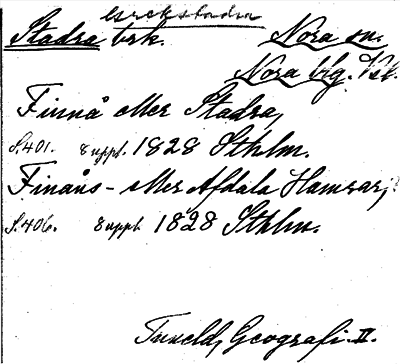 Stadra brk. Nora sn.
Nora blg. Vsl.
Finnå eller Stadra,
S. 401. 8 uppl. 1828 Sthlm.
Finåns- eller Afdala Hamrar;
S. 406. 8 uppl. 1828 Sthlm.
Tuneld, Geografi. II.